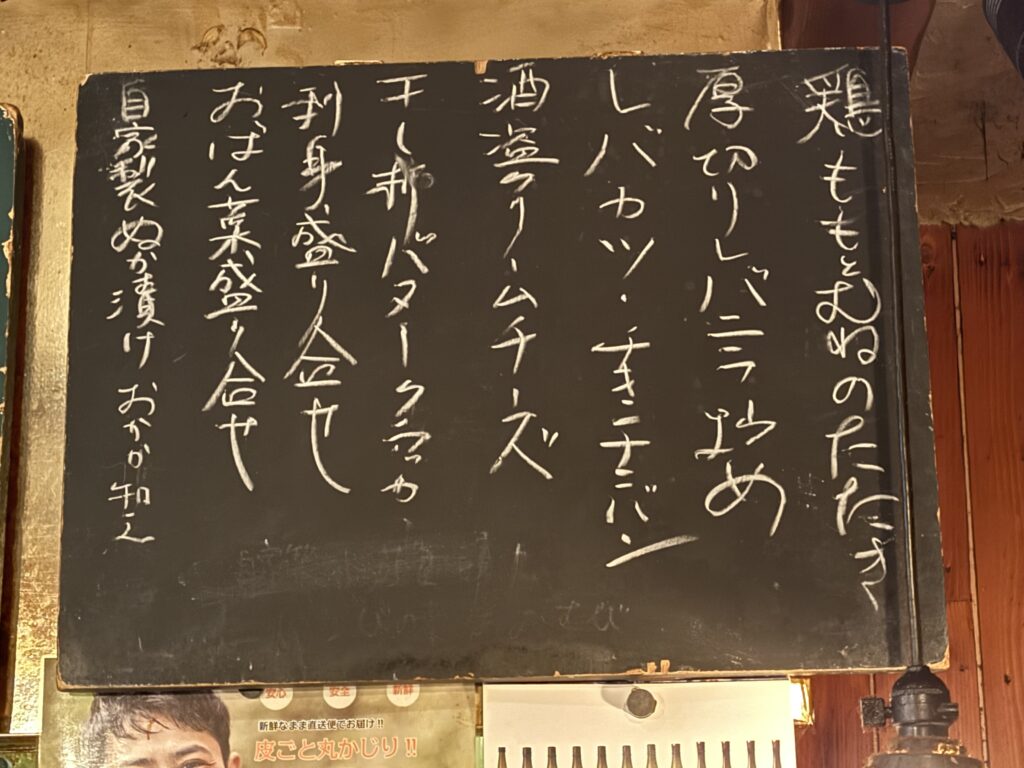 鶏ももとむねのたたき
厚切りレバニラ炒め
レバカツ・チキチキバン
酒盗クリームチーズ
干し柿バタークラッカー
刺身盛り合せ
おばん菜盛り合せ
自家製ぬか漬けおかか和え
安心
安全
新鮮
新鮮なまま直送便でお届け!!
皮ごと丸かじり!!